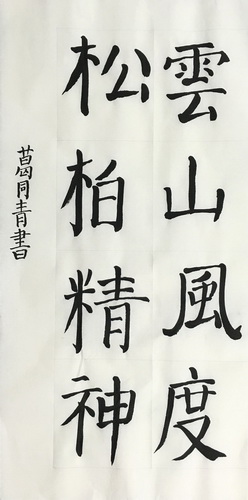 雲山風度
松柏精神
葛同青書